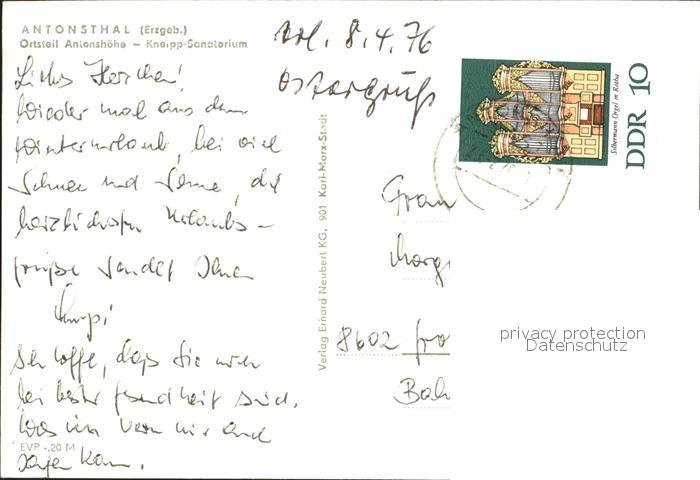 ANTONSTHAL (Erzgeb.)
Ortsteil Antonshöhe – Kneipp-Sanatorium
8.4.76
Ostergruß
Liebes
Wieder mal aus dem
Winterurlaub, bei viel
Schnee und Sonne, die
herzlichsten Urlaubs-
grüße sendet Ihnen
Ich hoffe, daß Sie noch
bei bester Gesundheit sind,
was ich von mir auch
sagen kann.
EVP -,20 M
Verlag Erhard Neubert KG, 901 Karl-Marx-Stadt
Silbermann-Orgel in Rötha
DDR 10
Frau
8602
privacy protection
Datenschutz